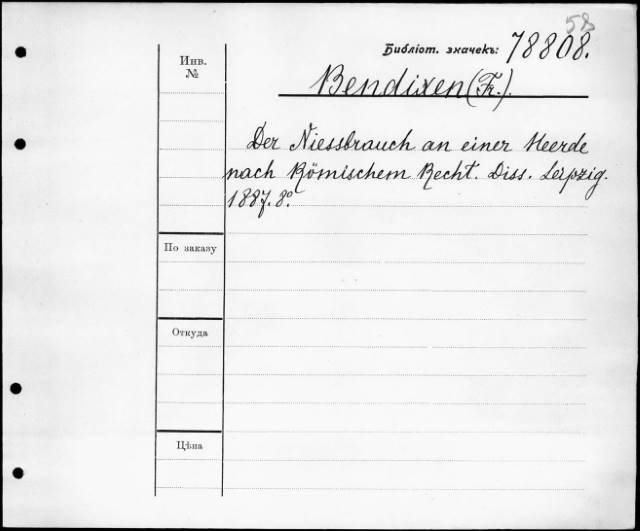 58
Библіот. значекъ: 78808.
Инв.
№
Bendixen (Fr.).
Der Niessbrauch an einer Heerde
nach Römischem Recht. Diss. Leipzig.
1887. 8°.
По заказу
Откуда
Цѣна